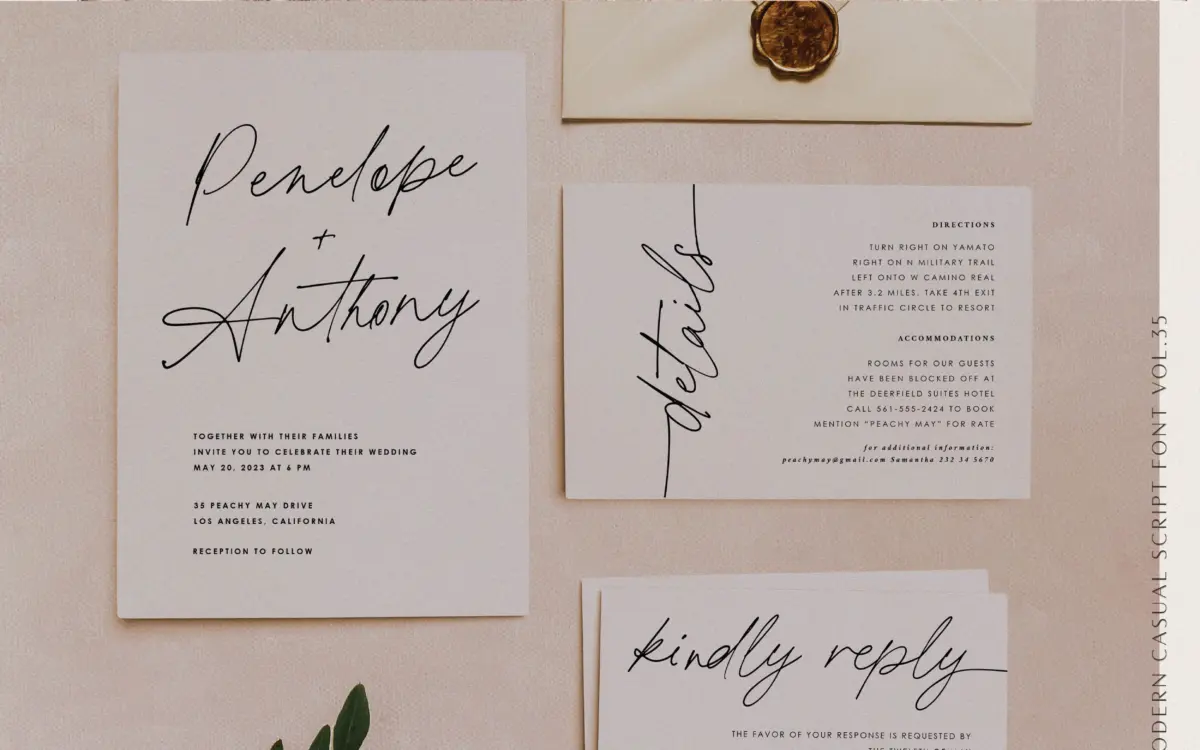 Penelope
+
Anthony
TOGETHER WITH THEIR FAMILIES
INVITE YOU TO CELEBRATE THEIR WEDDING
MAY 20, 2023 AT 6 PM
35 PEACHY MAY DRIVE
LOS ANGELES, CALIFORNIA
RECEPTION TO FOLLOW
details
DIRECTIONS
TURN RIGHT ON YAMATO
RIGHT ON N MILITARY TRAIL
LEFT ONTO W CAMINO REAL
AFTER 3.2 MILES, TAKE 4TH EXIT
IN TRAFFIC CIRCLE TO RESORT
ACCOMMODATIONS
ROOMS FOR OUR GUESTS
HAVE BEEN BLOCKED OFF AT
THE DEERFIELD SUITES HOTEL
CALL 561-555-2424 TO BOOK
MENTION "PEACHY MAY" FOR RATE
for additional information:
peachymay@gmail.com Samantha 232 34 5670
kindly reply
THE FAVOR OF YOUR RESPONSE IS REQUESTED BY
CASUAL SCRIPT FONT VOL.35